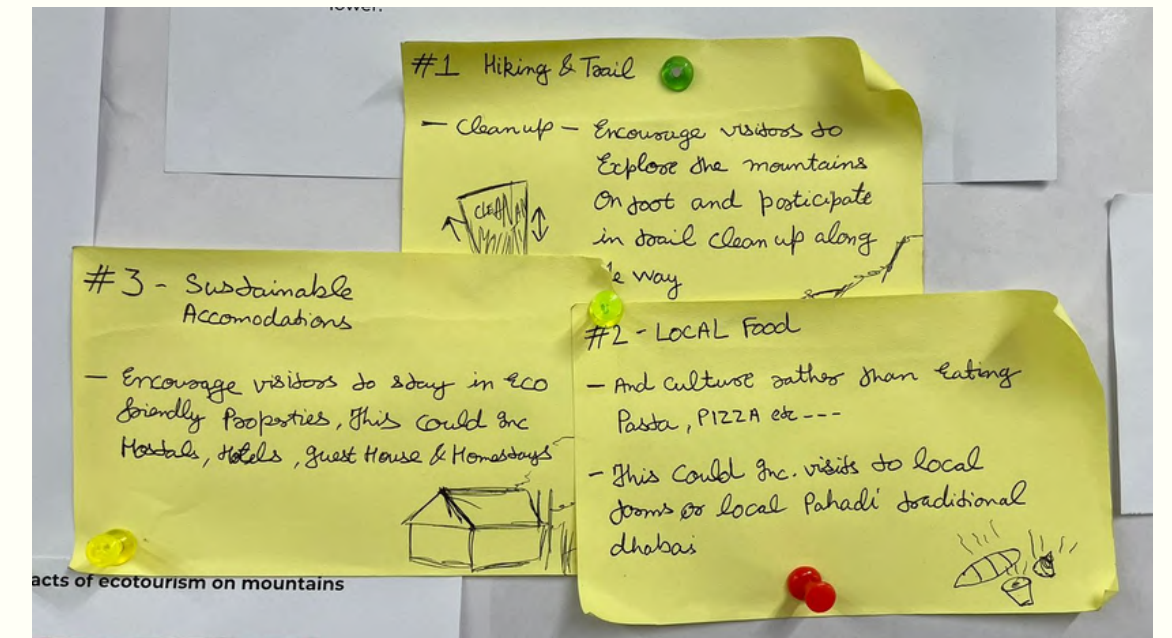 lower.
#1 Hiking & Trail
– Clean up – Encourage visitors to
Explore the mountains
On foot and participate
in trail clean up along
way
CLEAN
#3 - Sustainable
Accomodations
– Encourage visitors to stay in Eco
friendly Properties, This could Inc
Hostals, Hotels, guest House & Homestays
#2 - LOCAL Food
– And culture rather than Eating
Pasta, PIZZA etc ---
– This could Inc. visits to local
forms or local Pahadi traditional
dhabas
acts of ecotourism on mountains